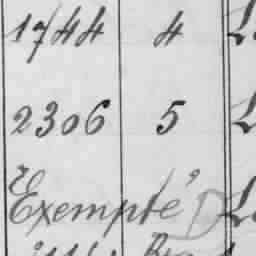 1744 4 L
2306 5 L
Exempté D L